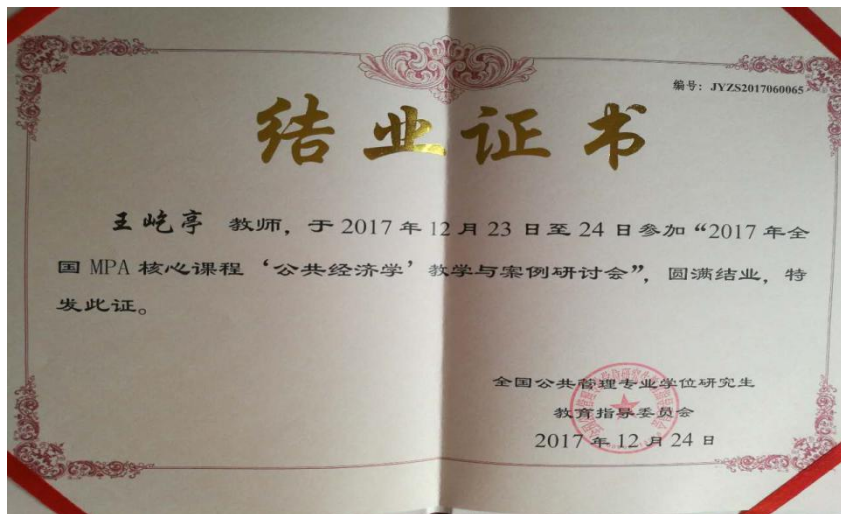 编号：JYZS2017060065
结业证书
王屹亭 教师，于 2017 年 12 月 23 日至 24 日参加“2017 年全
国 MPA 核心课程‘公共经济学’教学与案例研讨会”，圆满结业，特
发此证。
全国公共管理专业学位研究生
教育指导委员会
2017 年 12 月 24 日